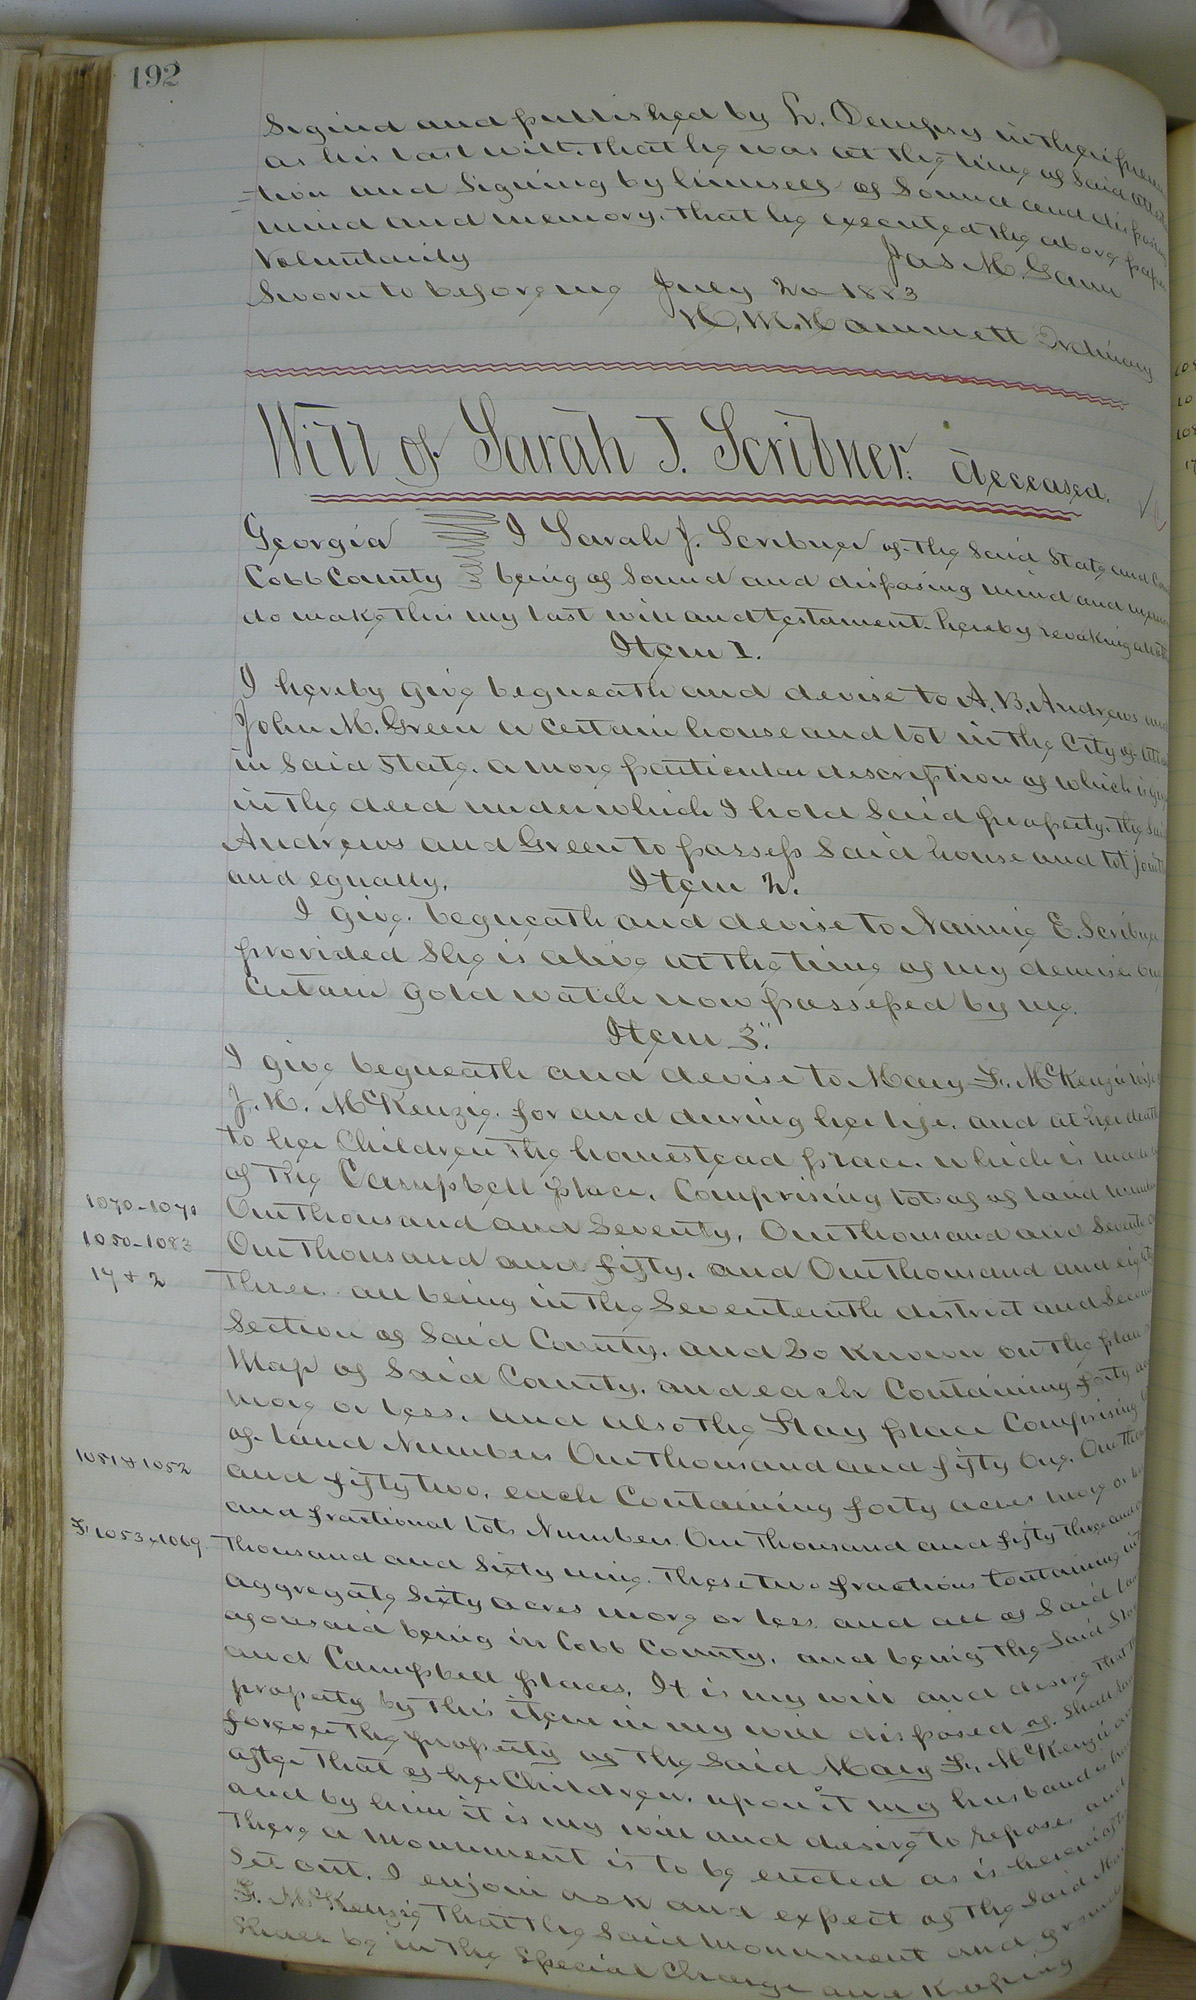 192
Signed and published by L. Dempsy in their presence
as his last will. That he was at the time of said attest
=tion and signing by himself of sound and disposing
mind and memory. That he executed the above paper
Voluntarily Jas M. Gann
Sworn to before me July 20 1883
H. M. Hammett Ordinary
Will of Sarah J. Scribner. deceased.
Georgia I Sarah J. Scribner of the said State and
Cobb County being of sound and disposing mind and
do make this my last will and testament. hereby revoking
Item 1.
I hereby give bequeath and devise to A. B. Andrews and
John M. Green a certain house and lot in the City of
in said State. a more particular description of which is
in the deed under which I hold said property. the said
Andrews and Green to possess said house and lot
and equally. Item 2.
I give. bequeath and devise to Nannie E. Scribner
provided she is alive at the time of my demise. one
certain gold watch now possessed by me.
Item 3."
I give bequeath and devise to Mary F. McKenzie wife
J. H. McKenzie. for and during her life. and at her death
to her Children the homestead place. which is made
of the Campbell place. Comprising lots of of land
1070-1071 One thousand and Seventy, One thousand and
1050-1083 One thousand and fifty. and One thousand and
17 & 2 three. all being in the Seventeenth district and Second
Section of said County. and so known on the plan
Map of said County. and each Containing forty
more or less. and also the Slay place Comprising
of land Numbers One thousand and fifty One. One
1051 & 1052 and fifty two. each Containing forty acres more or
and fractional lots Numbers One thousand and fifty three and
F 1053 & 1069 thousand and sixty nine. These two fractions Containing in
aggregate sixty acres more or less and all of said
aforesaid being in Cobb County. and being the said
and Campbell places. It is my will and desire that
property by this item in my will disposed of. shall
forever the property of the said Mary F. McKenzie
after that of her Children. upon it my husband is
and by him it is my will and desire to repose and
there a monument is to be erected as is hereinafter
set out. I enjoin ask and expect of the said
F. McKenzie that the said monument and
shall be in the special Charge and keeping